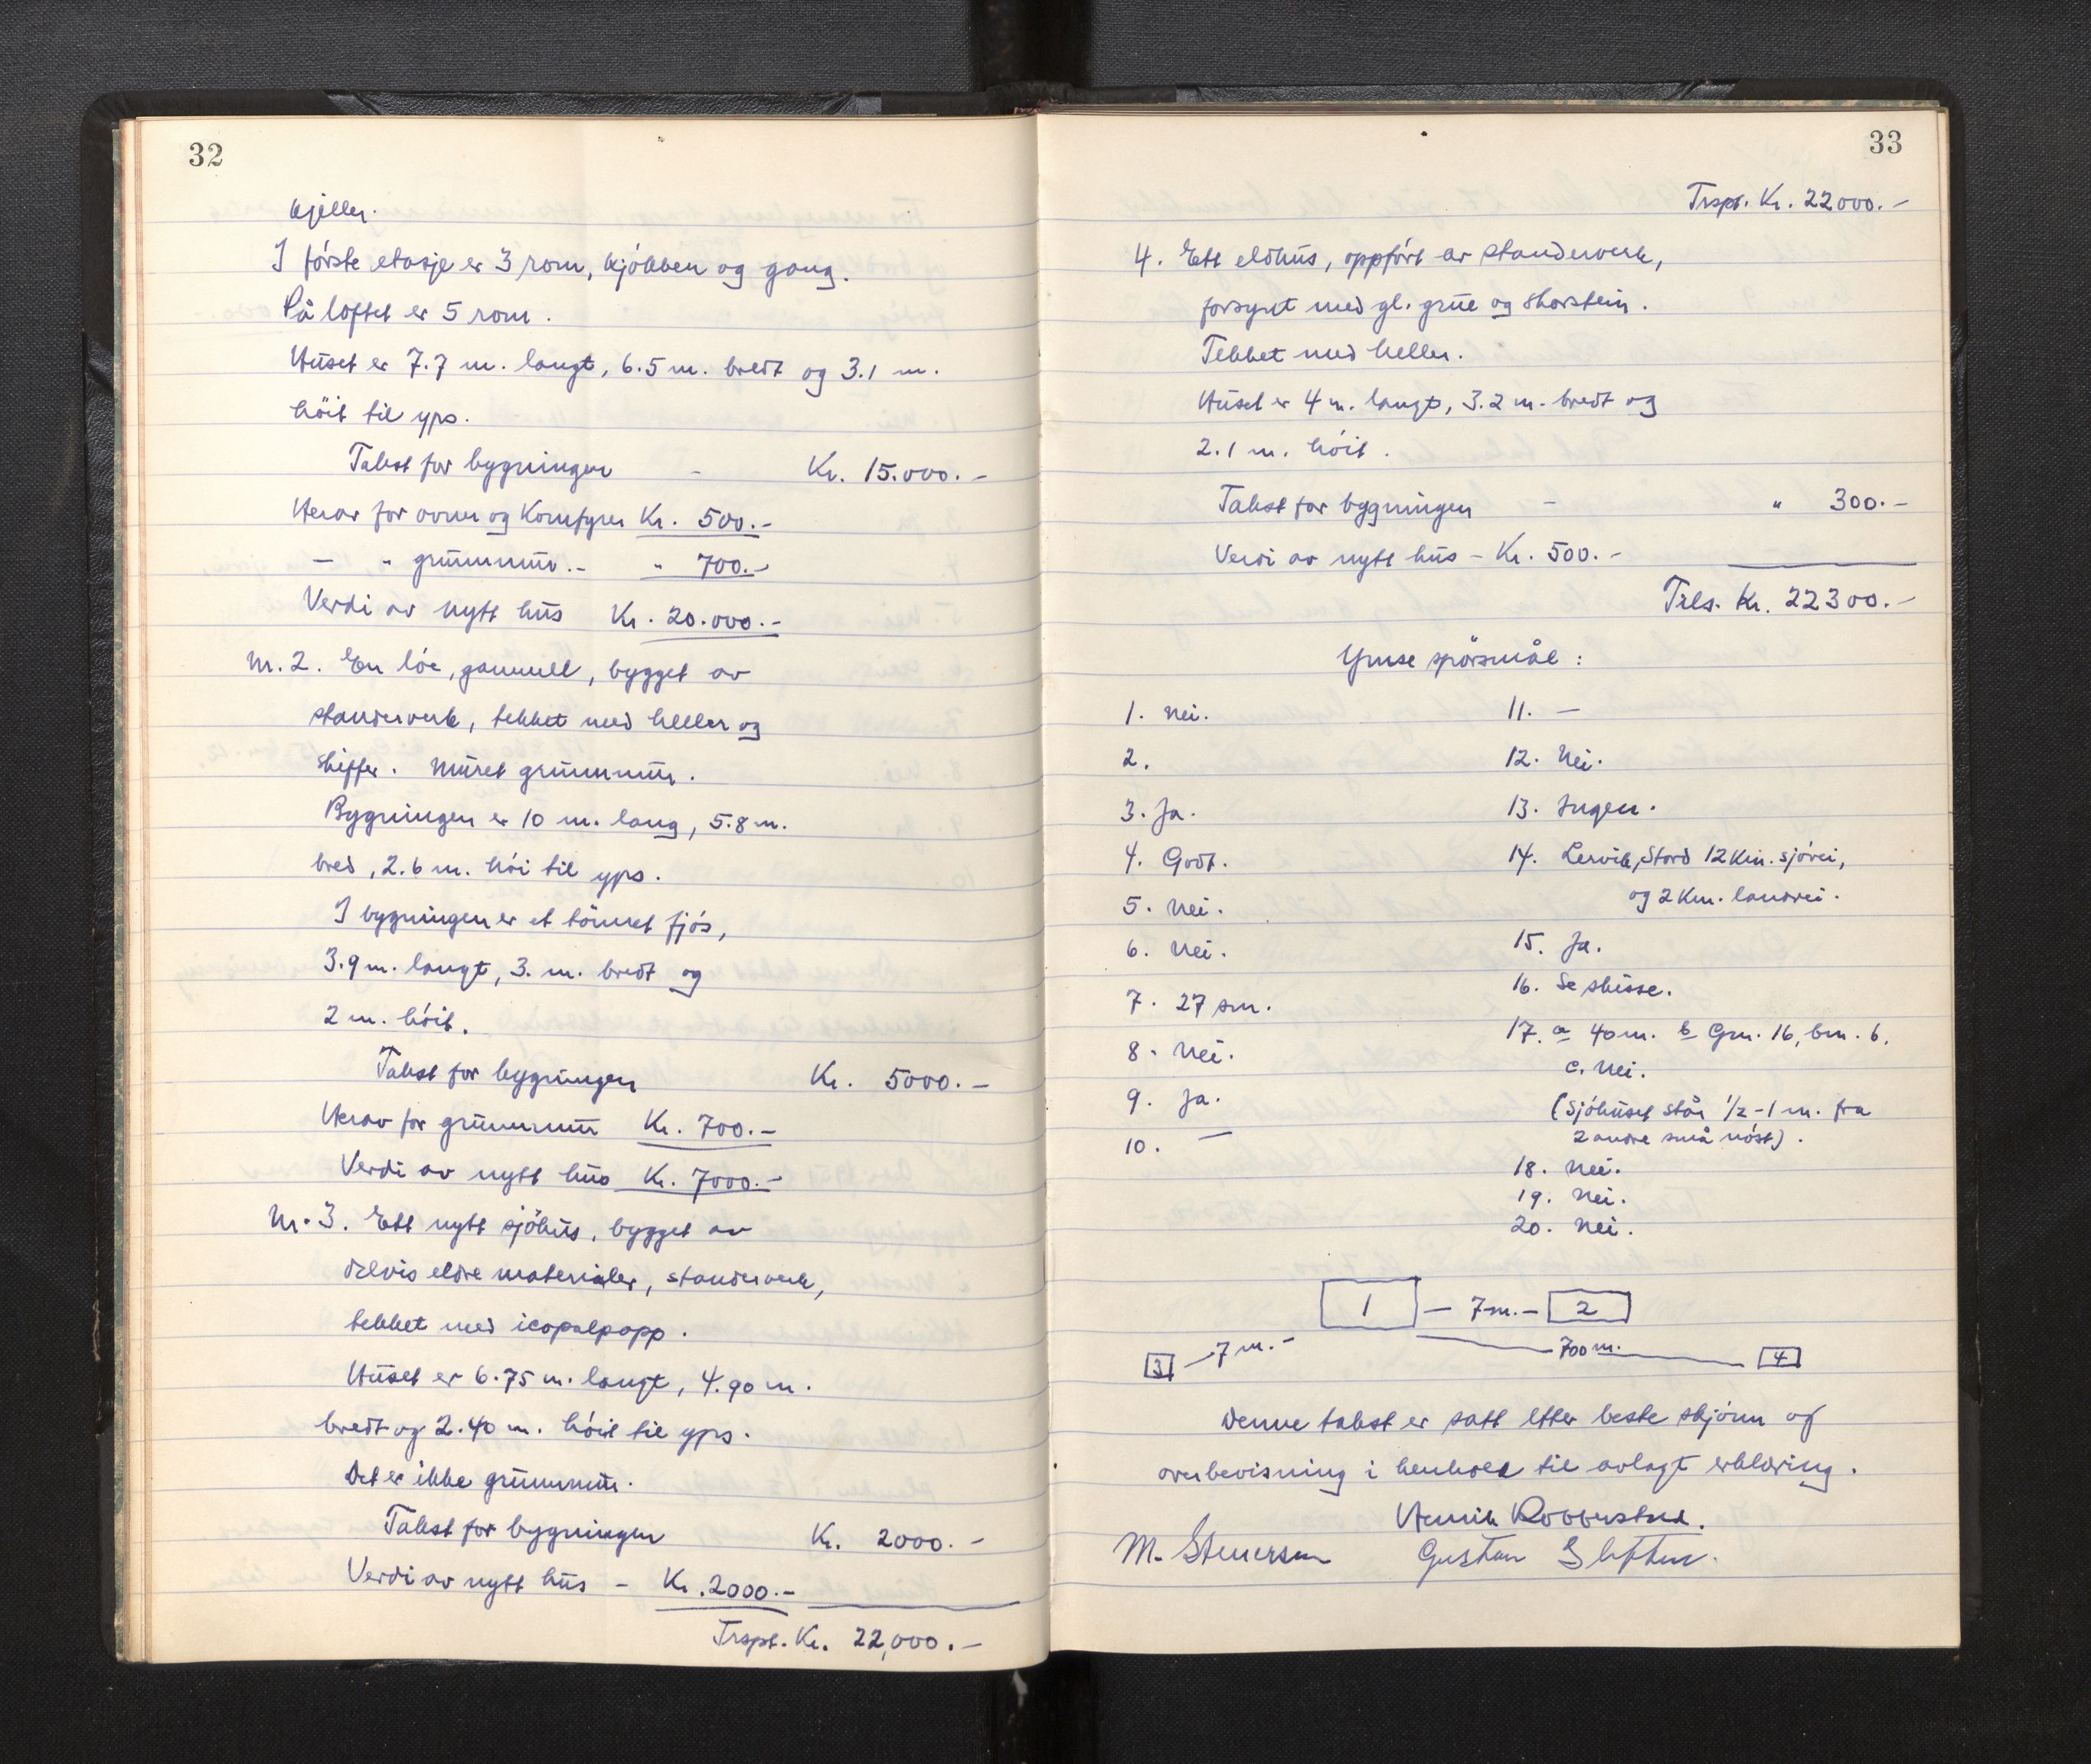 32
kjeller.
I förste etasje er 3 rom, kjökken og gang.
På loftet er 5 rom.
Huset er 7.7 m. langt, 6.5 m. bredt og 3.1 m.
höit til yps.
Takst for bygningen - Kr. 15.000.-
Herav for ovner og Komfyrer Kr. 500.-
— " grunnmur.- " 700.-
Verdi av nytt hus Kr. 20.000.-
M. 2. En löe, gammel, bygget av
standerverk, tekket med heller og
skiffer. Muret grunnmur.
Bygningen er 10 m. lang, 5.8 m.
bred, 2.6 m. höi til yps.
I bygningen er et tömret fjös,
3.9 m. langt, 3. m. bredt og
2 m. höit.
Takst for bygningen Kr. 5000.-
Herav for grunnmur Kr. 700.-
Verdi av nytt hus Kr. 7000.-
M. 3. Ett nytt sjöhus, bygget av
delvis eldre materialer, standerverk,
tekket med icopalpapp.
Huset er 6.75 m. langt, 4.90 m.
bredt og 2.40 m. höit til yps.
Det er ikke grunnmur.
Takst for bygningen Kr. 2000.-
Verdi av nytt hus - Kr. 2000.-
Trspt. Kr. 22,000.-
33
Trspt. Kr. 22000.-
4. Ett eldhus, oppfört av standerverk,
forsynt med gl. grue og skorstein.
Tekket med heller.
Huset er 4 m. langt, 3.2 m. bredt og
2.1 m. höit.
Takst for bygningen - " 300.-
Verdi av nytt hus - Kr. 500.-
Tils. Kr. 22300.-
Ymse spörsmål:
1. Nei.
2.
3. Ja.
4. Godt.
5. Nei.
6. Nei.
7. 27 sm.
8. Nei.
9. Ja.
10. —
11. —
12. Nei.
13. Ingen.
14. Lervik, Stord 12 Km. sjövei,
og 2 Km. landvei.
15. Ja.
16. Se skisse.
17. a 40 m. b Gm. 16, bm. 6.
c. Nei.
(Sjöhuset står 1/2-1 m. fra
2 andre små nöst).
18. Nei.
19. Nei.
20. Nei.
1 — 7 m. — 2
3 — 7 m. — 700 m. 4
Denne takst er satt etter beste skjönn og
overbevisning i henhold til avlagt erklæring.
Henrik
M. Gustav